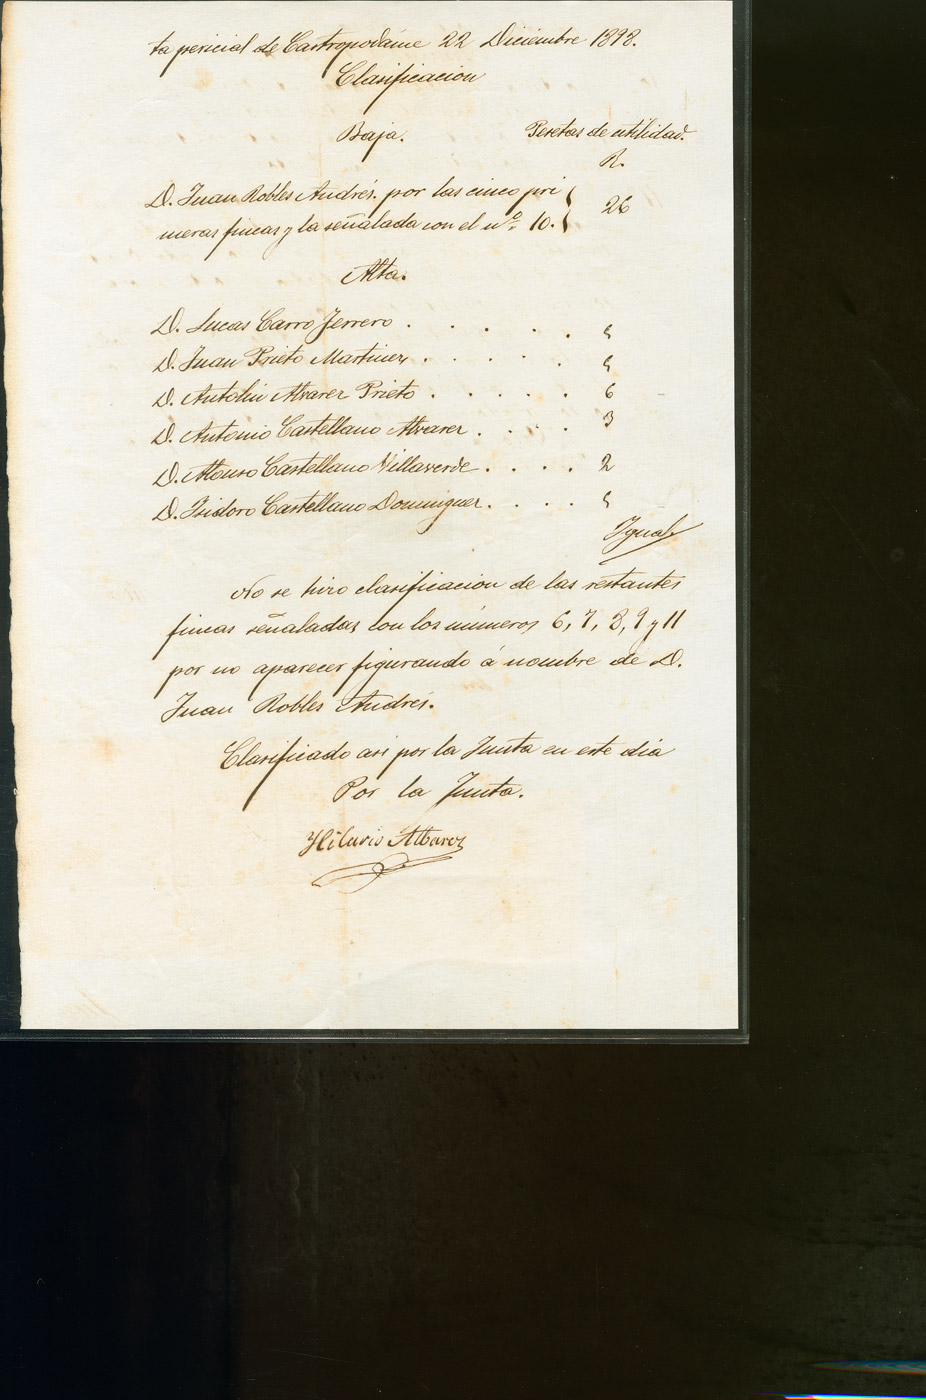 ta pericial de Castropodame 22 Diciembre 1898.
Clasificacion
Baja. Pesetas de utilidad.
R.
D. Juan Robles Andrés. por las cinco pri
meras fincas y la señalada con el nº. 10. 26
Alta.
D. Lucas Carro Ferrero . . . . . 5
D. Juan Prieto Martinez . . . . . 5
D. Antolin Alvarez Prieto . . . . . 6
D. Antonio Castellano Alvarez . . . . 3
D. Alonso Castellano Villaverde . . . . 2
D. Isidoro Castellano Dominguez . . . . 5
Igual
No se hizo clasificacion de las restantes
fincas señaladas con los números 6, 7, 8, 9 y 11
por no aparecer figurando á nombre de D.
Juan Robles Andrés.
Clasificado asi por la Junta en este dia
Por la Junta.
Hilario Albarez